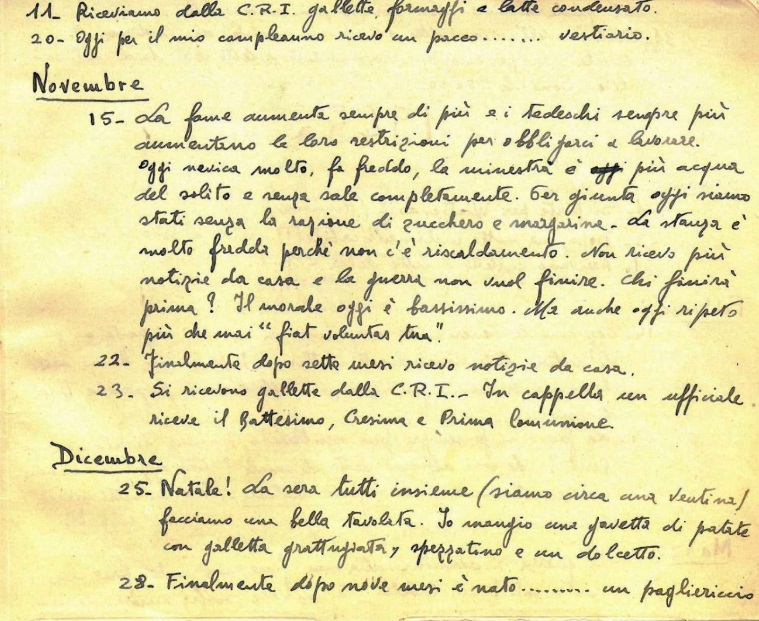 11- Riceviamo dalla C.R.I. gallette, formaggi e latte condensato.
20- Oggi per il mio compleanno ricevo un pacco....... vestiario.
Novembre
15- La fame aumenta sempre di più e i tedeschi sempre più
aumentano le loro restrizioni per obbligarci a lavorare.
Oggi nevica molto, fa freddo, la minestra è più acqua
del solito e senza sale completamente. Per giunta oggi siamo
stati senza la razione di zucchero e margarina. La stanza è
molto fredda perchè non c'è riscaldamento. Non ricevo più
notizie da casa e la guerra non vuol finire. Chi finirà
prima? Il morale oggi è bassissimo. Ma anche oggi ripeto
più che mai "fiat voluntas tua".
22- Finalmente dopo sette mesi ricevo notizie da casa.
23- Si ricevono gallette dalla C.R.I.- In cappella un ufficiale
riceve il Battesimo, Cresima e Prima Comunione.
Dicembre
25- Natale! La sera tutti insieme (siamo circa una ventina)
facciamo una bella tavolata. Io mangio una gavetta di patate
con galletta grattugiata, spezzatino e un dolcetto.
28- Finalmente dopo nove mesi è nato......... un pagliericcio